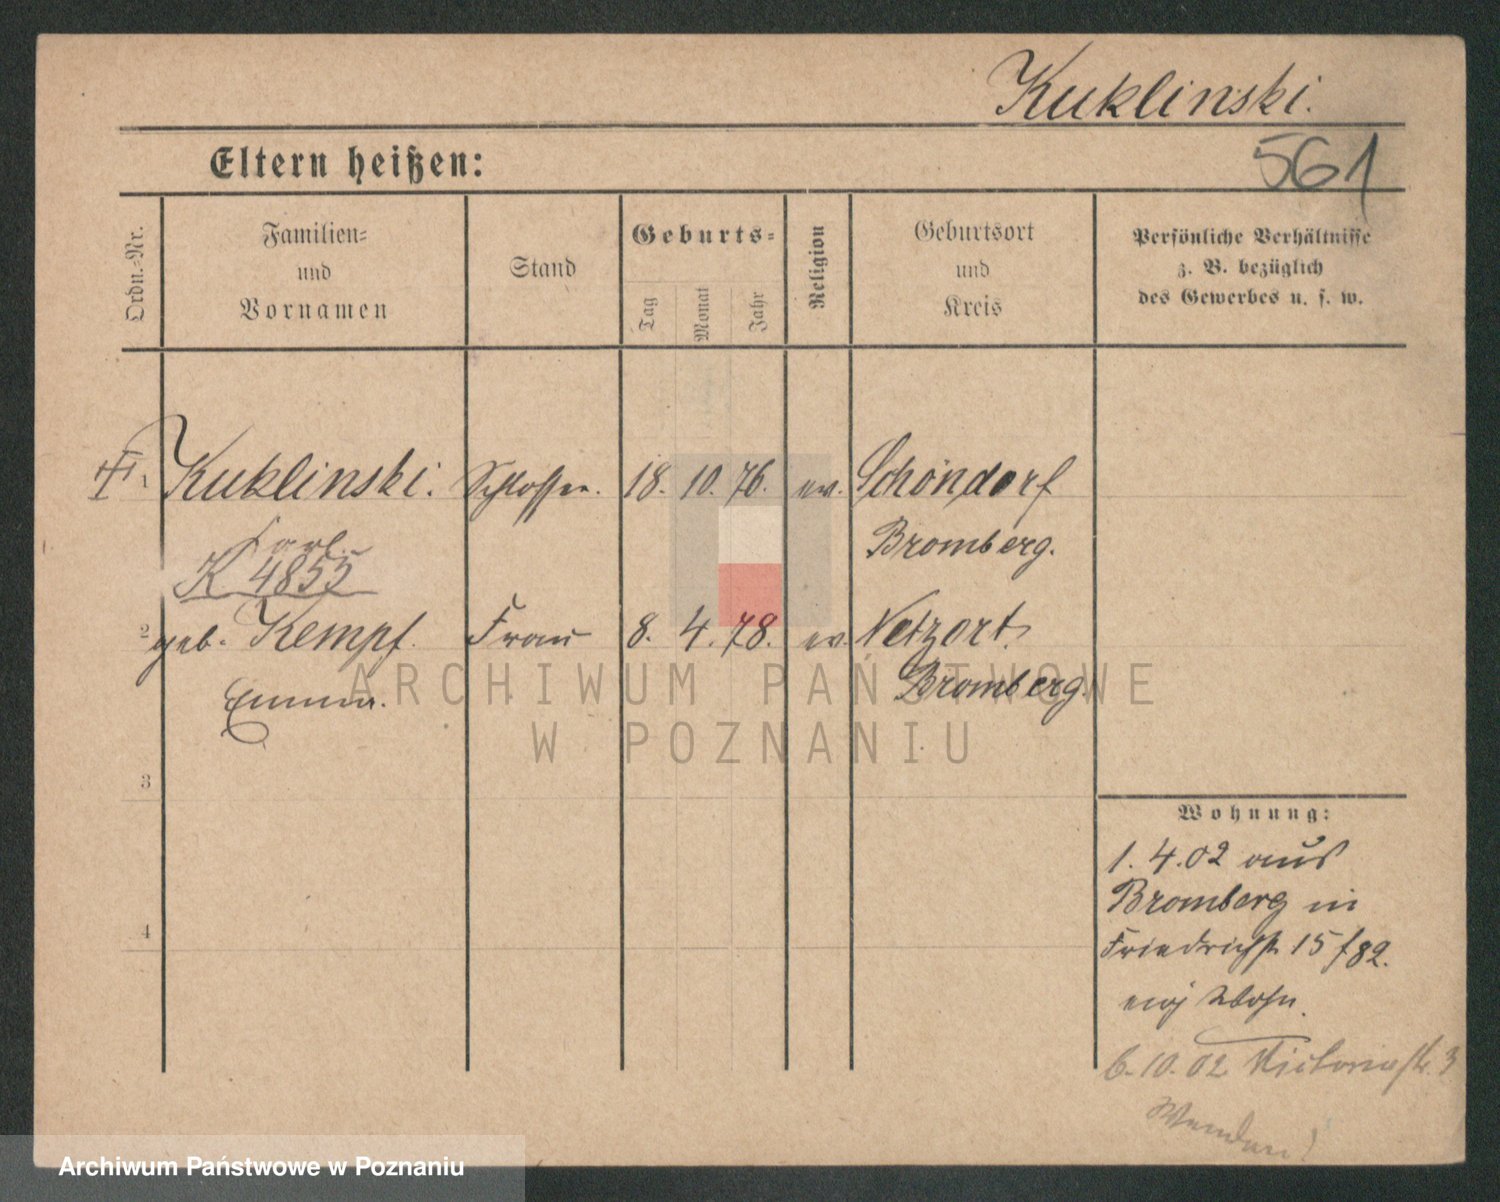 Kuklinski.
561
Eltern heißen:
Ordn.-Nr.
Familien-
und
Vornamen
Stand
Geburts-
Tag
Monat
Jahr
Religion
Geburtsort
und
Kreis
Persönliche Verhältnisse
z. B. bezüglich
des Gewerbes u. s. w.
1 Kuklinski. Schlosser. 18. 10. 76. ev. Schöndorf
Karl. Bromberg.
K 4853
2 geb. Kempf. Frau 8. 4. 78. ev. Netzort.
Emma. Bromberg.
3
4
Wohnung:
1. 4. 02 aus
Bromberg in
Friedrichstr 15 /82.
eig Wohn.
6. 10. 02 Victoriastr. 3
Wenden!
ARCHIWUM PAŃSTWOWE
W POZNANIU
Archiwum Państwowe w Poznaniu